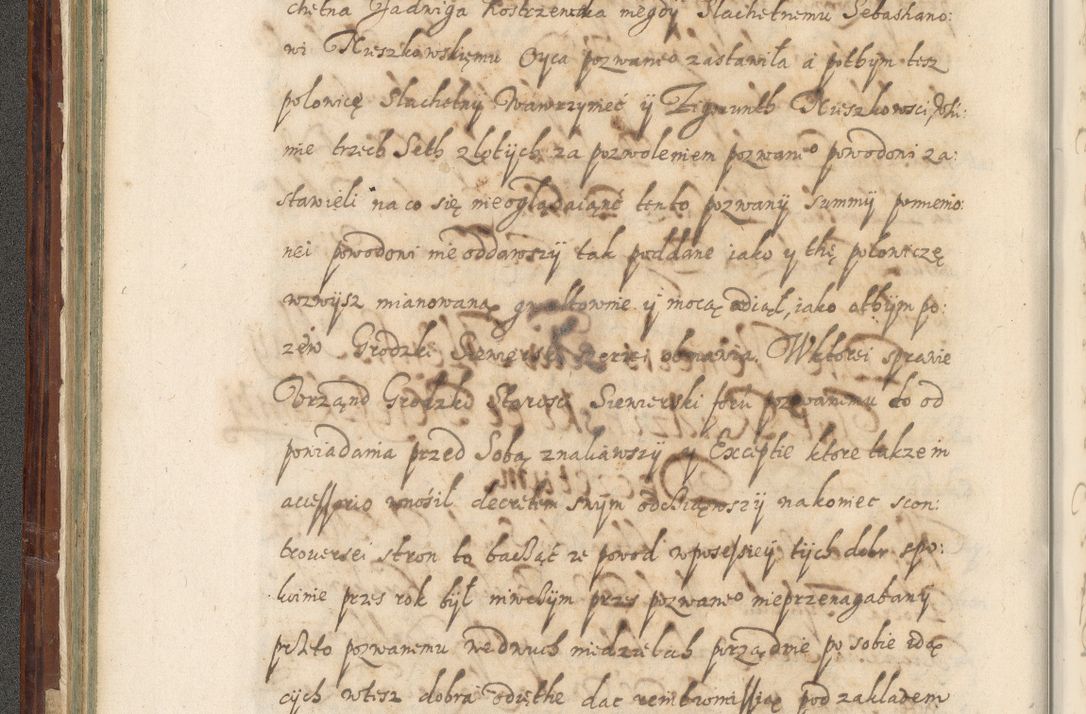 chetna Jadwiga Kostrzewska megdy Slachetnemu Sebastiano:
wi Mieszkowskiemu Oyca pozwane° zastawiła a potbym tesz
polowicę Slachetny Wawrzyniec ÿ Zigmunth Mieszkowsci
mie trzech Seth złotÿch za pozwoleniem pozwane° powodowi za:
stawieli na co się nieoglądaiąnć tento pozwany summÿ pomienio:
nei powodowi nie oddawszÿ tak poddane iako y thę polowiczę
wzwÿsz mianowaną gwałtownie ÿ mocą odiął, iako othÿm po:
zew Grodzki Siewierski szerzei obmawia. Wktorei sprawie
Vrząnd Grodzki Starosci Siewierski foru pozwanemu to od
powiadania przed Sobą znaliawszÿ ÿ Exceptie ktore takze in
accessorio wnosił decretem swÿm odchiąwszÿ nakoniec scon:
trouersei stron to bacząc ze powod wposessiey tÿch dobr spo:
koinie przes rok bÿł niwchÿm przes pozwane° nieprzenagabanÿ
pozwanemu wedwuch niedzielach porządnie po sobie idą
cÿch wtesz dobra odięthe dac reintromissią pod zakladem